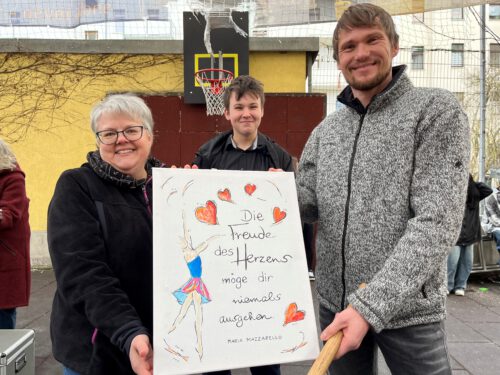 Die
Freude
des
Herzens
möge dir
niemals
ausgehen
MARIA MAZZARELLO